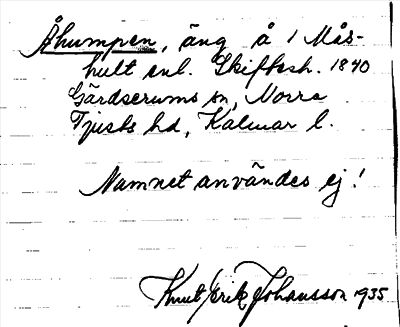 Åhumpen, äng å 1 Mås-
hult enl. Skifbesk. 1840
Gärdserums sn, Norra
Tjusts hd, Kalmar l.
Namnet användes ej!
Knut Erik Johansson 1935